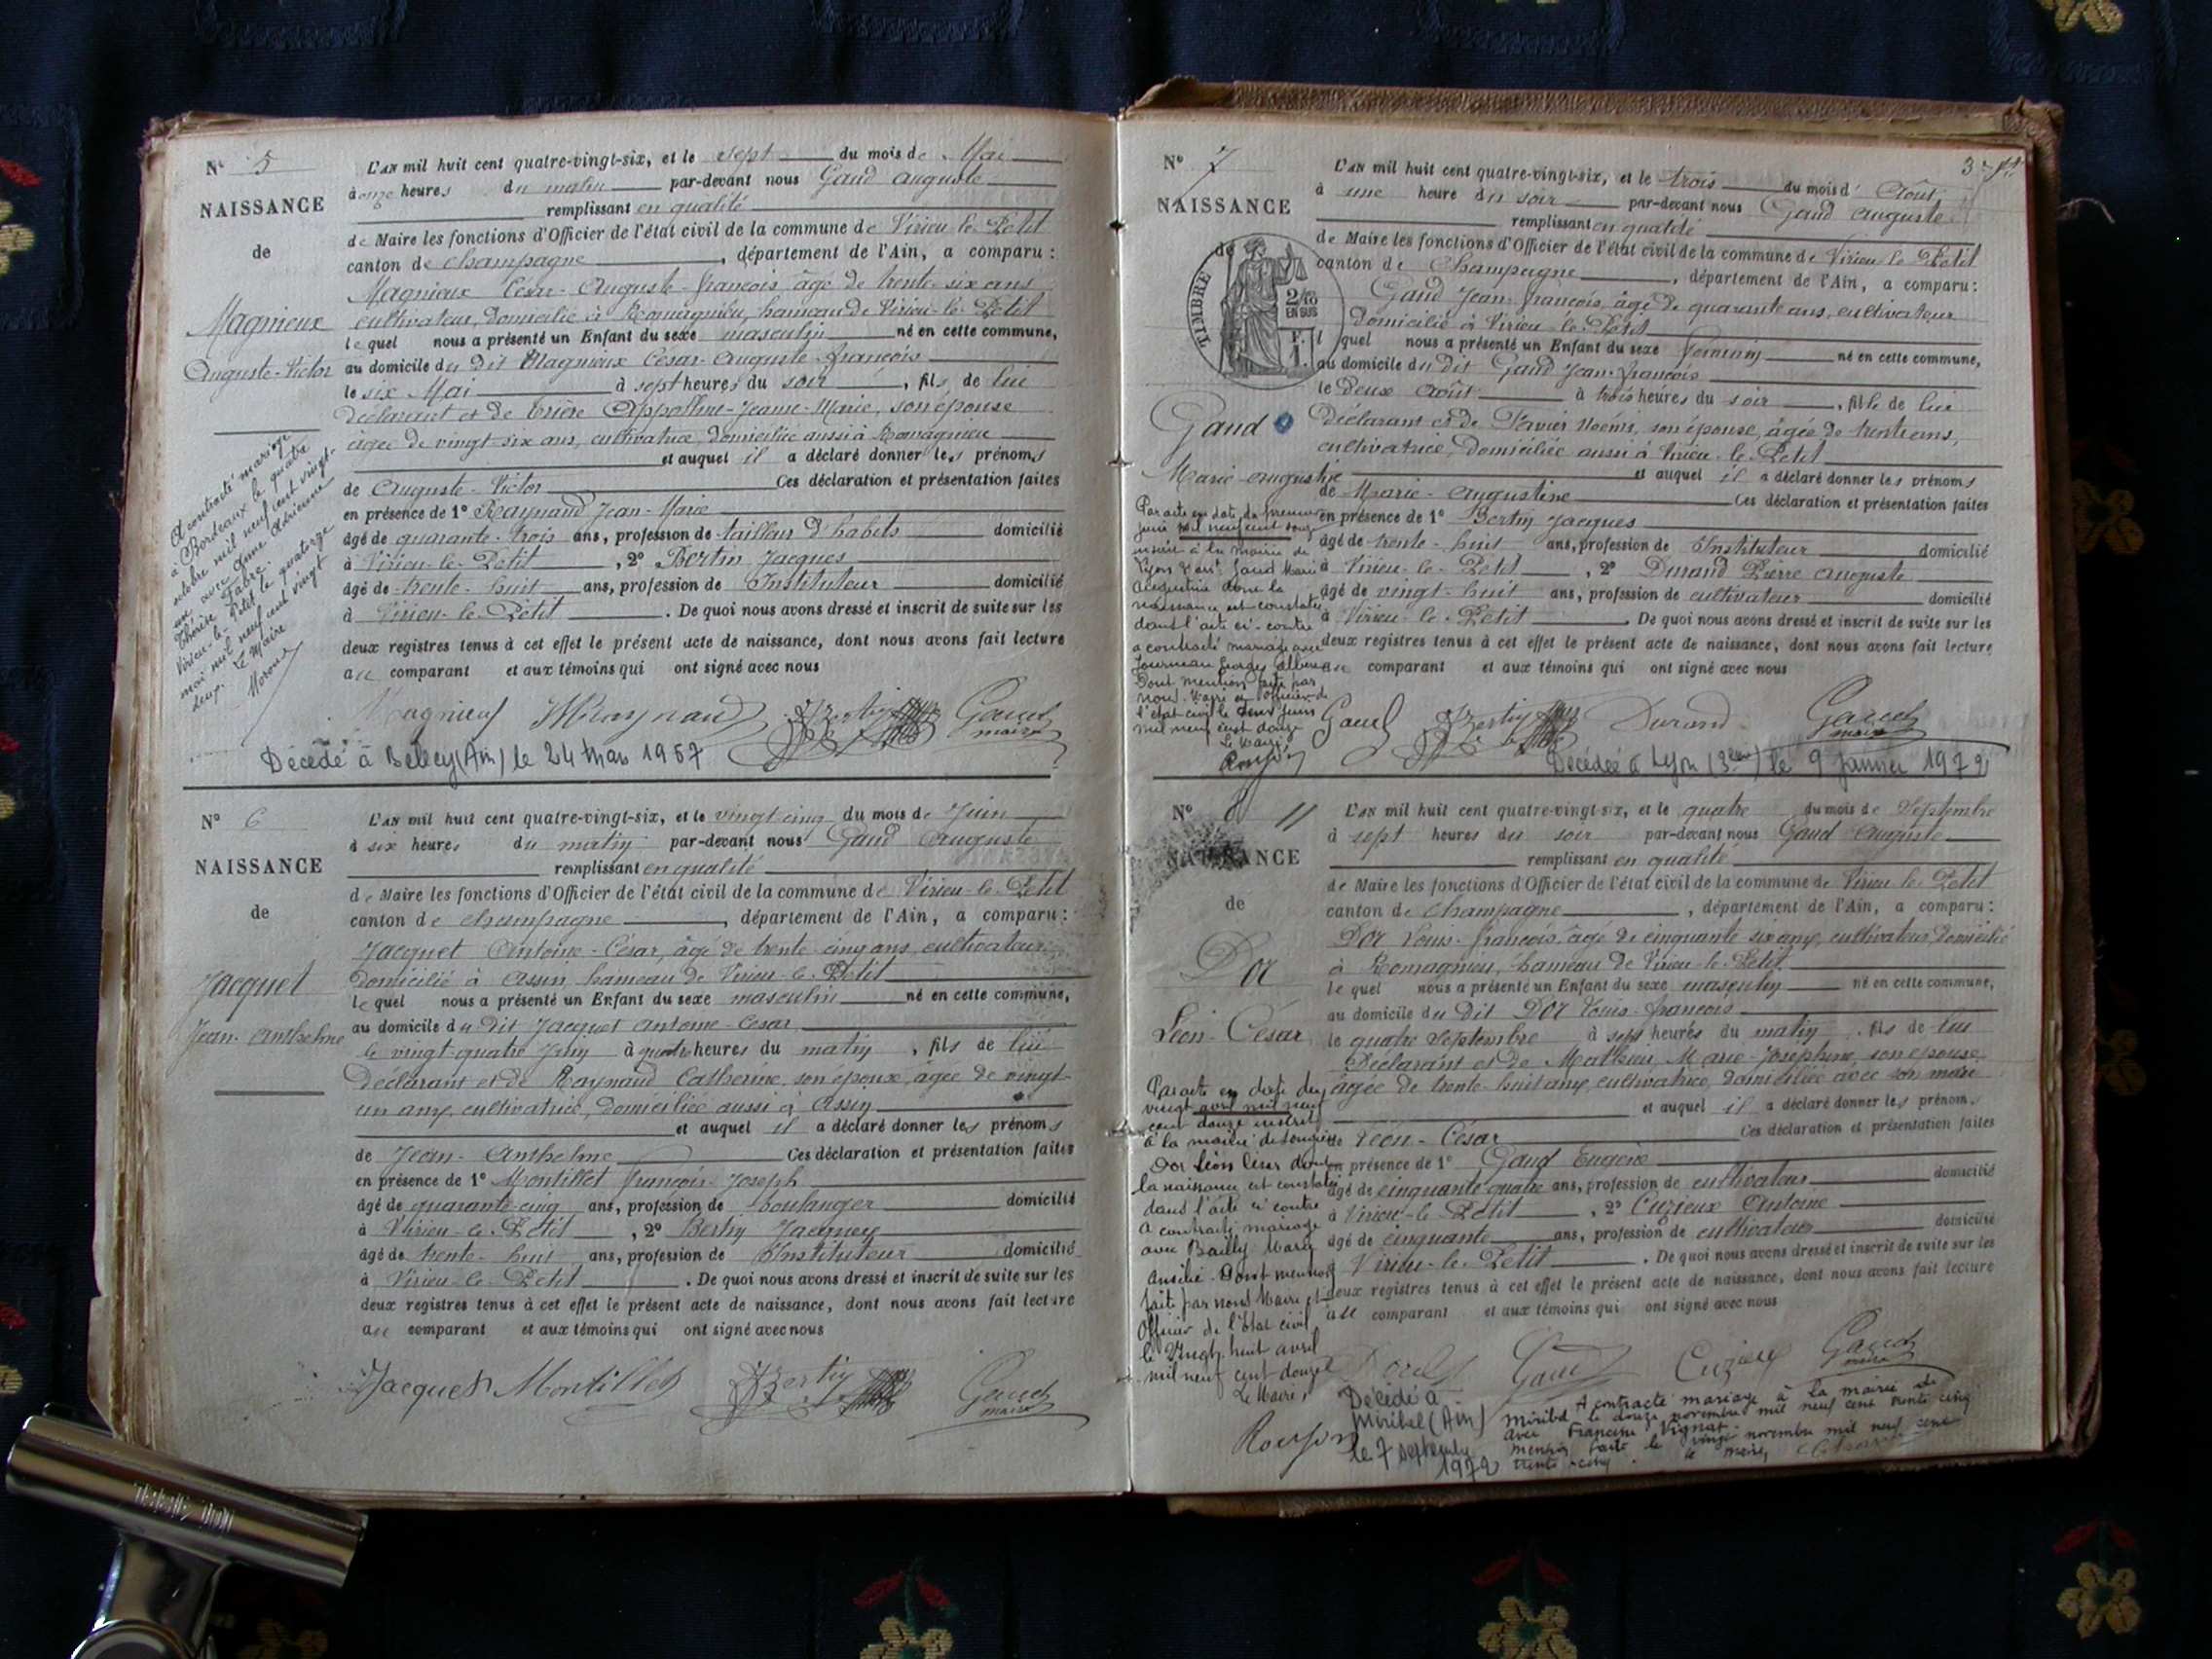 N° 5
NAISSANCE
de
Magnieux
Auguste-Victor
A contracté mariage
à Bordeaux le quatre
octobre mil neuf cent vingt-
un avec Anne Adrienne
Thérèse Fabre.
Virieu-le-Petit le quatorze
mai mil neuf cent vingt
deux.
Le Maire
L'AN mil huit cent quatre-vingt-six, et le sept du mois de Mai
à onze heures du matin par-devant nous Gaud Auguste
remplissant en qualité
de Maire les fonctions d'Officier de l'état civil de la commune de Virieu-le-Petit
canton de Champagne, département de l'Ain, a comparu :
Magnieux César-Auguste-François, âgé de trente-six ans
cultivateur, domicilié à Romagnieu, hameau de Virieu-le-Petit
lequel nous a présenté un Enfant du sexe masculin né en cette commune,
au domicile du dit Magnieux César-Auguste-François
le six Mai à sept heures du soir, fils de lui
déclarant et de Appolline-Jeanne-Marie, son épouse
âgée de vingt-six ans, cultivatrice, domiciliée aussi à Romagnieu
et auquel il a déclaré donner les prénoms
de Auguste-Victor Ces déclaration et présentation faites
en présence de 1° Raynaud Jean-Marie
âgé de quarante-trois ans, profession de tailleur d'habits domicilié
à Virieu-le-Petit, 2° Bertin Jacques
âgé de trente-huit ans, profession de Instituteur domicilié
à Virieu-le-Petit. De quoi nous avons dressé et inscrit de suite sur les
deux registres tenus à cet effet le présent acte de naissance, dont nous avons fait lecture
au comparant et aux témoins qui ont signé avec nous
Magnieux Raynaud Bertin Gaud
maire
Décédé à Belley (Ain) le 24 Mars 1967
N° 6
NAISSANCE
de
Jacquet
Jean-Anthelme
L'AN mil huit cent quatre-vingt-six, et le vingt-cinq du mois de Juin
à six heures du matin par-devant nous Gaud Auguste
remplissant en qualité
de Maire les fonctions d'Officier de l'état civil de la commune de Virieu-le-Petit
canton de Champagne, département de l'Ain, a comparu :
Jacquet Antoine-César, âgé de trente-cinq ans, cultivateur
domicilié à Assin, hameau de Virieu-le-Petit
lequel nous a présenté un Enfant du sexe masculin né en cette commune,
au domicile du dit Jacquet Antoine-César
le vingt-quatre Juin à quatre heures du matin, fils de lui
déclarant et de Raynaud Catherine, son épouse, âgée de vingt-
un ans, cultivatrice, domiciliée aussi à Assin
et auquel il a déclaré donner les prénoms
de Jean-Anthelme Ces déclaration et présentation faites
en présence de 1° Montillet François-Joseph
âgé de quarante-cinq ans, profession de boulanger domicilié
à Virieu-le-Petit, 2° Bertin Jacques
âgé de trente-huit ans, profession de Instituteur domicilié
à Virieu-le-Petit. De quoi nous avons dressé et inscrit de suite sur les
deux registres tenus à cet effet le présent acte de naissance, dont nous avons fait lecture
au comparant et aux témoins qui ont signé avec nous
Jacquet Montillet Bertin Gaud
maire
N° 7
NAISSANCE
de
TIMBRE
2/10
EN SUS
Gaud
Marie-Augustine
Par acte en date du premier
juin mil neuf cent douze
inscrit à la mairie de
Lyon Gaud Marie
Augustine dont la
naissance est constatée
dans l'acte ci-contre
a contracté mariage avec
Georges Albert
Dont mention faite par
nous Maire et officier de
l'état civil le deux juin
mil neuf cent douze
Le Maire
L'AN mil huit cent quatre-vingt-six, et le trois du mois d'Août
à une heure du soir par-devant nous Gaud Auguste
remplissant en qualité
de Maire les fonctions d'Officier de l'état civil de la commune de Virieu-le-Petit
canton de Champagne, département de l'Ain, a comparu :
Gaud Jean-François, âgé de quarante ans, cultivateur
domicilié à Virieu-le-Petit
lequel nous a présenté un Enfant du sexe féminin né en cette commune,
au domicile du dit Gaud Jean-François
le deux Août à trois heures du soir, fille de lui
déclarant et de Noémi, son épouse, âgée de trente ans,
cultivatrice, domiciliée aussi à Virieu-le-Petit
et auquel il a déclaré donner les prénoms
de Marie-Augustine Ces déclaration et présentation faites
en présence de 1° Bertin Jacques
âgé de trente-huit ans, profession de Instituteur domicilié
à Virieu-le-Petit, 2° Durand Pierre Auguste
âgé de vingt-huit ans, profession de cultivateur domicilié
à Virieu-le-Petit. De quoi nous avons dressé et inscrit de suite sur les
deux registres tenus à cet effet le présent acte de naissance, dont nous avons fait lecture
au comparant et aux témoins qui ont signé avec nous
Gaud Bertin Durand Gaud
maire
Décédée à Lyon (3ème) le 9 Janvier 1972
N° 8
NAISSANCE
de
Dor
Léon-César
Par acte en date du
vingt avril mil neuf
cent douze inscrit
à la mairie de
Dor Léon César dont
la naissance est constatée
dans l'acte ci contre
a contracté mariage
avec Bailly Marie
Dont mention
faite par nous Maire et
Officier de l'état civil
le Vingt-huit avril
mil neuf cent douze
Le Maire
L'AN mil huit cent quatre-vingt-six, et le quatre du mois de Septembre
à sept heures du soir par-devant nous Gaud Auguste
remplissant en qualité
de Maire les fonctions d'Officier de l'état civil de la commune de Virieu-le-Petit
canton de Champagne, département de l'Ain, a comparu :
Dor Louis-François, âgé de cinquante-six ans, cultivateur, domicilié
à Romagnieu, hameau de Virieu-le-Petit
lequel nous a présenté un Enfant du sexe masculin né en cette commune,
au domicile du dit Dor Louis-François
le quatre Septembre à sept heures du matin, fils de lui
déclarant et de Mathieu Marie-Joséphine, son épouse
âgée de trente-huit ans, cultivatrice, domiciliée avec son mari
et auquel il a déclaré donner les prénoms
de Léon-César Ces déclaration et présentation faites
en présence de 1° Gaud Eugène
âgé de cinquante-quatre ans, profession de cultivateur domicilié
à Virieu-le-Petit, 2° Cuzieux Antoine
âgé de cinquante ans, profession de cultivateur domicilié
à Virieu-le-Petit. De quoi nous avons dressé et inscrit de suite sur les
deux registres tenus à cet effet le présent acte de naissance, dont nous avons fait lecture
au comparant et aux témoins qui ont signé avec nous
Gaud Gaud
maire
Décédé à
Miribel (Ain)
le 7 septembre
1972
A contracté mariage à la mairie de
Miribel le douze novembre mil neuf cent trente cinq
avec Francine Vignat.
Mention faite le vingt novembre mil neuf cent
trente-cinq. le maire